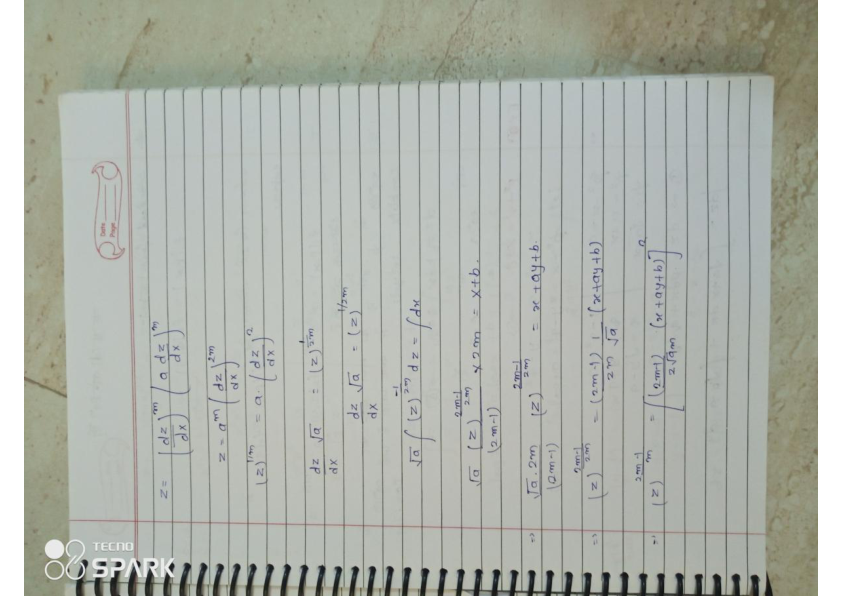 Date
Page
z = (dz/dx)^m (a dz/dx)^m
z = a^m (dz/dx)^2m
(z)^1/m = a · (dz/dx)^2
dz/dx √a = (z)^1/2m
dz/dx √a = (z)^1/2m
√a ∫ (z)^-1/2m dz = ∫ dx
√a (z)^2m-1/2m / (2m-1) × 2m = x + b.
⇒ √a · 2m / (2m-1) (z)^2m-1/2m = x + ay + b.
⇒ (z)^2m-1/2m = (2m-1)/2m 1/√a (x + ay + b)
⇒ (z)^2m-1/m = [(2m-1)/2√a m (x + ay + b)]^2
TECNO
SPARK